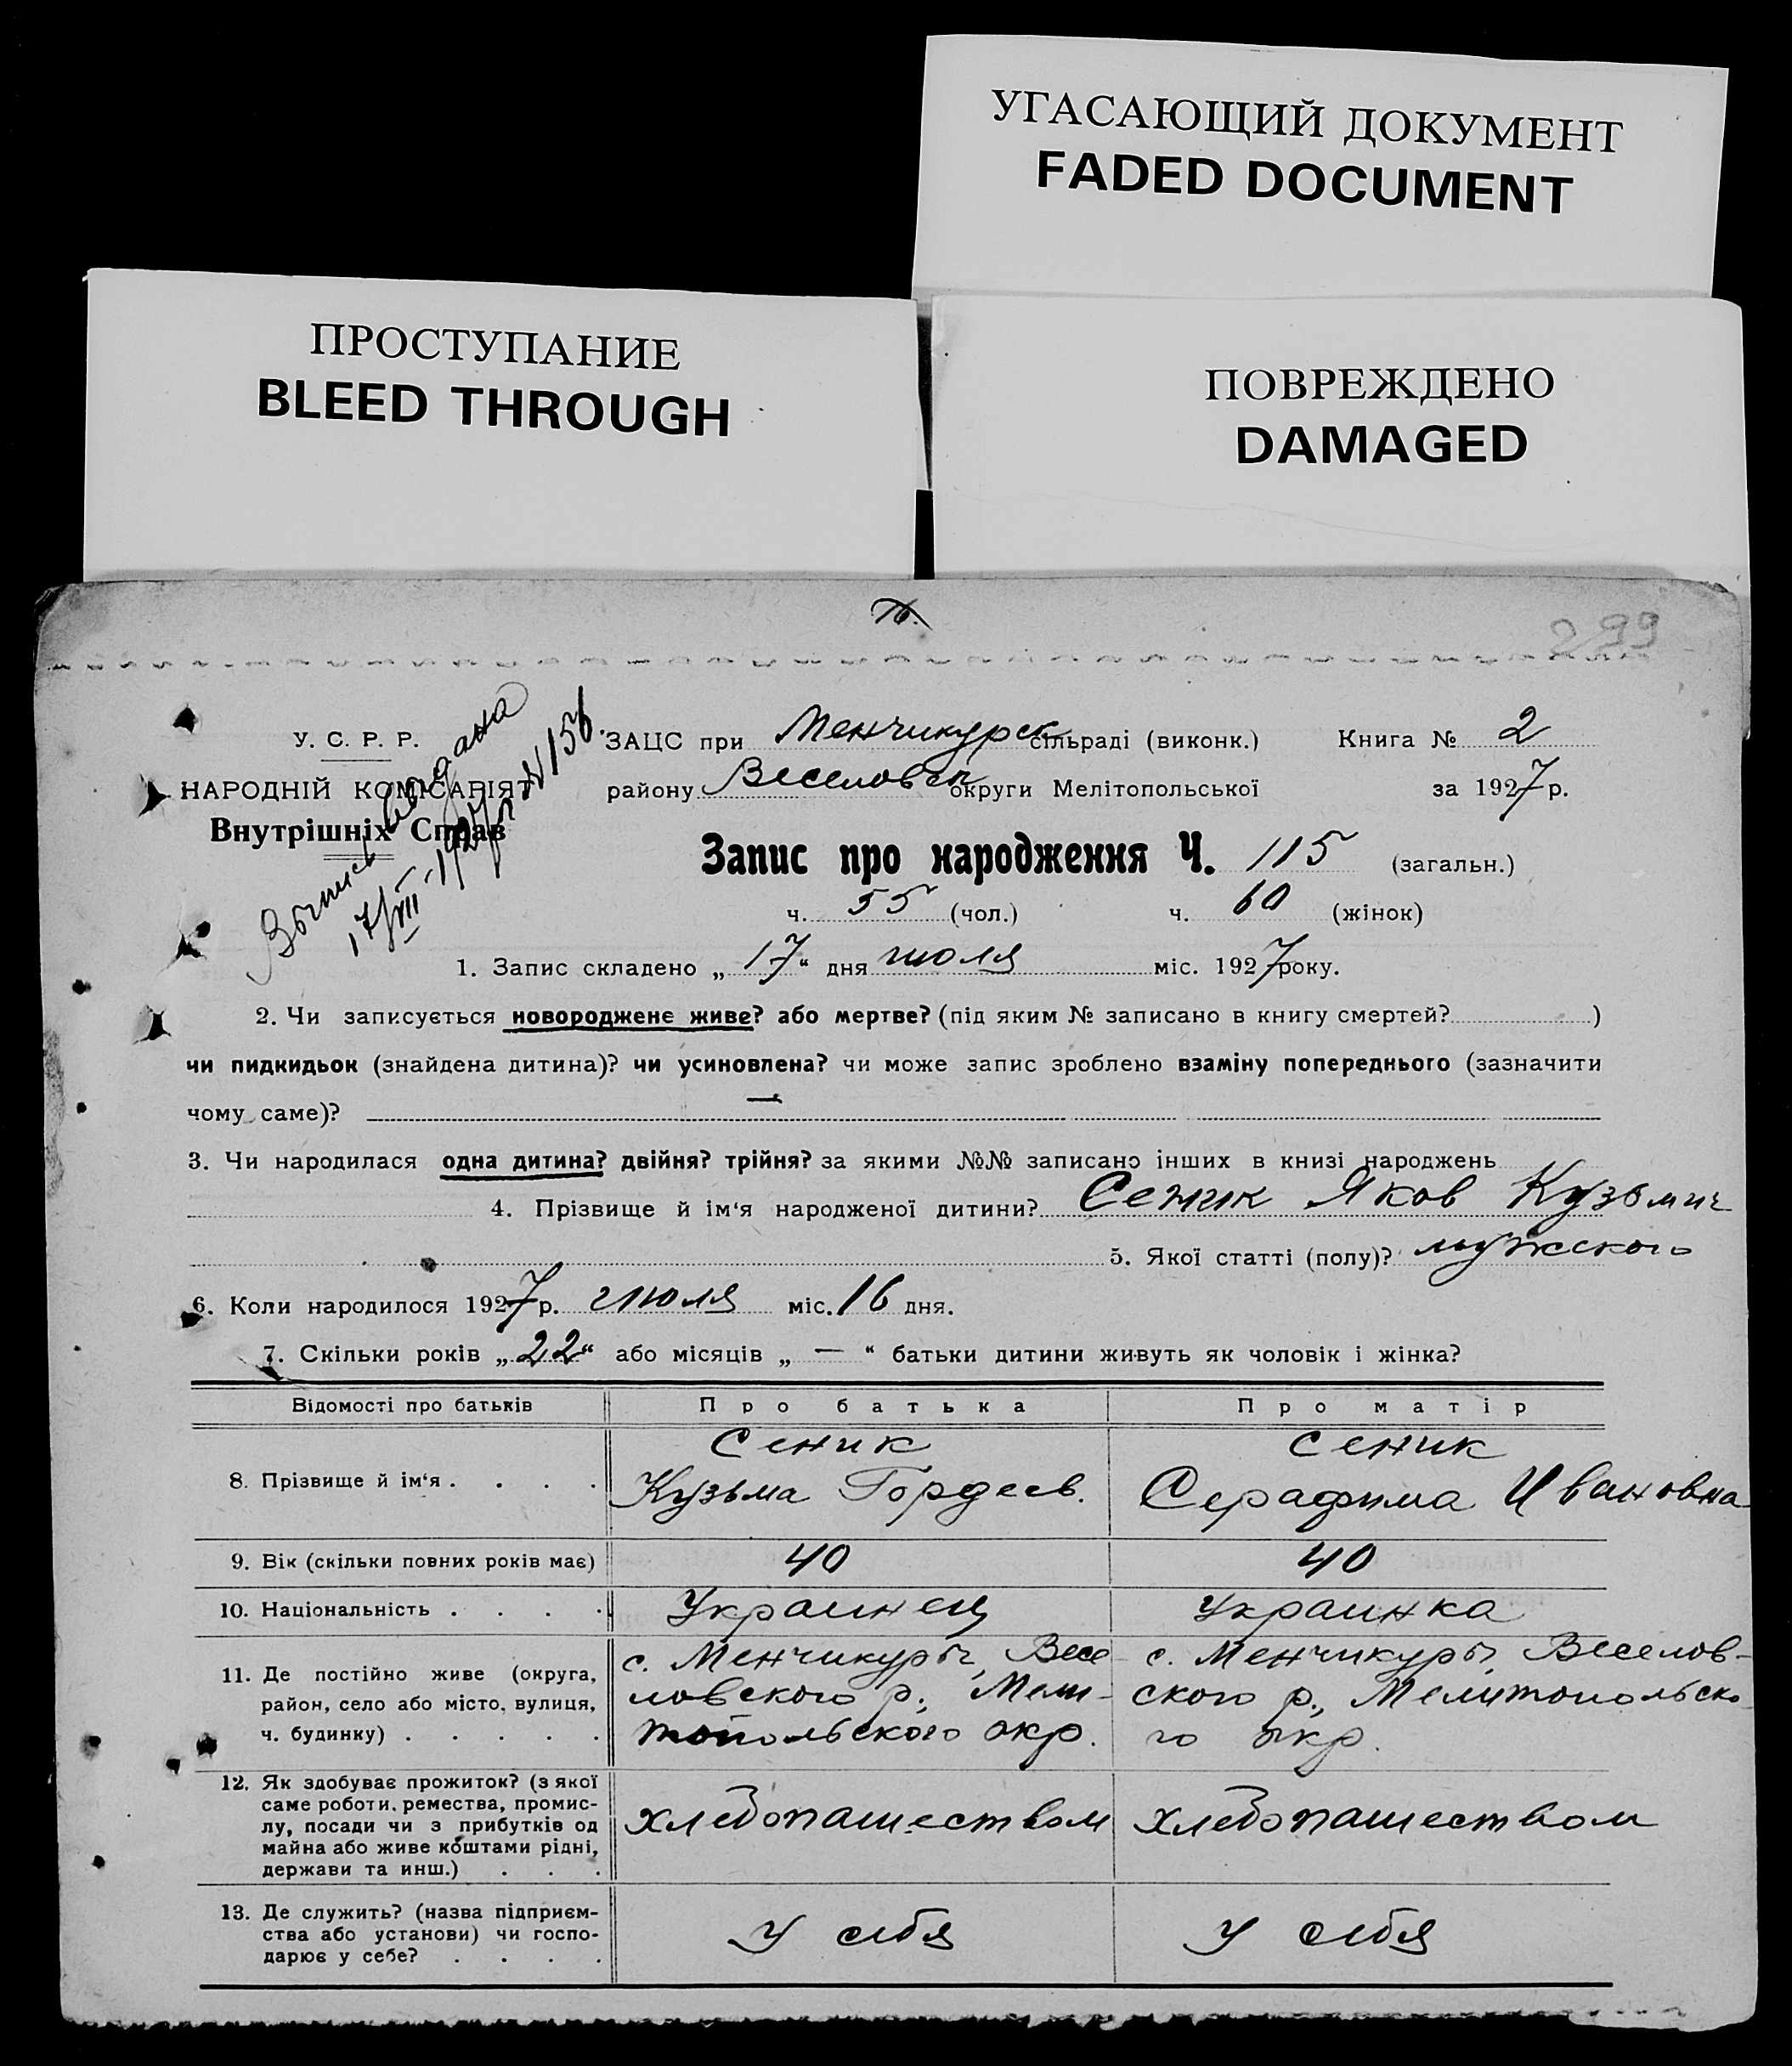 УГАСАЮЩИЙ ДОКУМЕНТ
FADED DOCUMENT
ПРОСТУПАНИЕ
BLEED THROUGH
ПОВРЕЖДЕНО
DAMAGED
299
У. С. Р. Р.
НАРОДНІЙ КОМІСАРІЯТ
Внутрішніх Справ
Выпись выдана
17/VIII-1927 г. N 156.
ЗАЦС при Менчикурск сільраді (виконк.) Книга № 2
району Веселовск округи Мелітопольської за 1927 р.
Запис про народження Ч. 115 (загальн.)
ч. 55 (чол.) ч. 60 (жінок)
1. Запис складено „ 17 “ дня июля міс. 1927 року.
2. Чи записується новороджене живе? або мертве? (під яким № записано в книгу смертей? )
чи пидкидьок (знайдена дитина)? чи усиновлена? чи може запис зроблено взаміну попереднього (зазначити
чому саме)? —
3. Чи народилася одна дитина? двійня? трійня? за якими №№ записано інших в книзі народжень
4. Прізвище й ім‘я народженої дитини? Сеник Яков Кузьмич
5. Якої статті (полу)? мужского
6. Коли народилося 1927 р. июля міс. 16 дня.
7. Скільки років „ 22 “ або місяців „ — “ батьки дитини живуть як чоловік і жінка?
Відомості про батьків Про батька Про матір
8. Прізвище й ім‘я . . . .
Сеник
Кузьма Гордеев.
Сеник
Серафима Ивановна
9. Вік (скільки повних років має) 40 40
10. Національність . . . . Украинец Украинка
11. Де постійно живе (округа,
район, село або місто, вулиця,
ч. будинку) . . . . .
с. Менчикуры, Весе
ловского р., Мели-
топольского окр.
с. Менчикуры, Веселов-
ского р., Мелитопольско
го окр.
12. Як здобуває прожиток? (з якої
саме роботи, ремества, промис-
лу, посади чи з прибутків од
майна або живе коштами рідні,
держави та инш.) . . .
хлебопашеством
хлебопашеством
13. Де служить? (назва підприєм-
ства або установи) чи госпо-
дарює у себе? . . . .
У себя
У себя